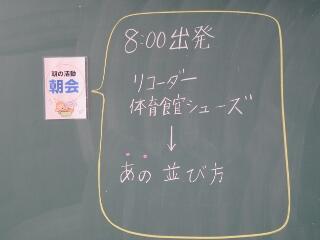 朝の活動
朝会
8:00 出発
リコーダー
体育館シューズ
↓
あの 並び方